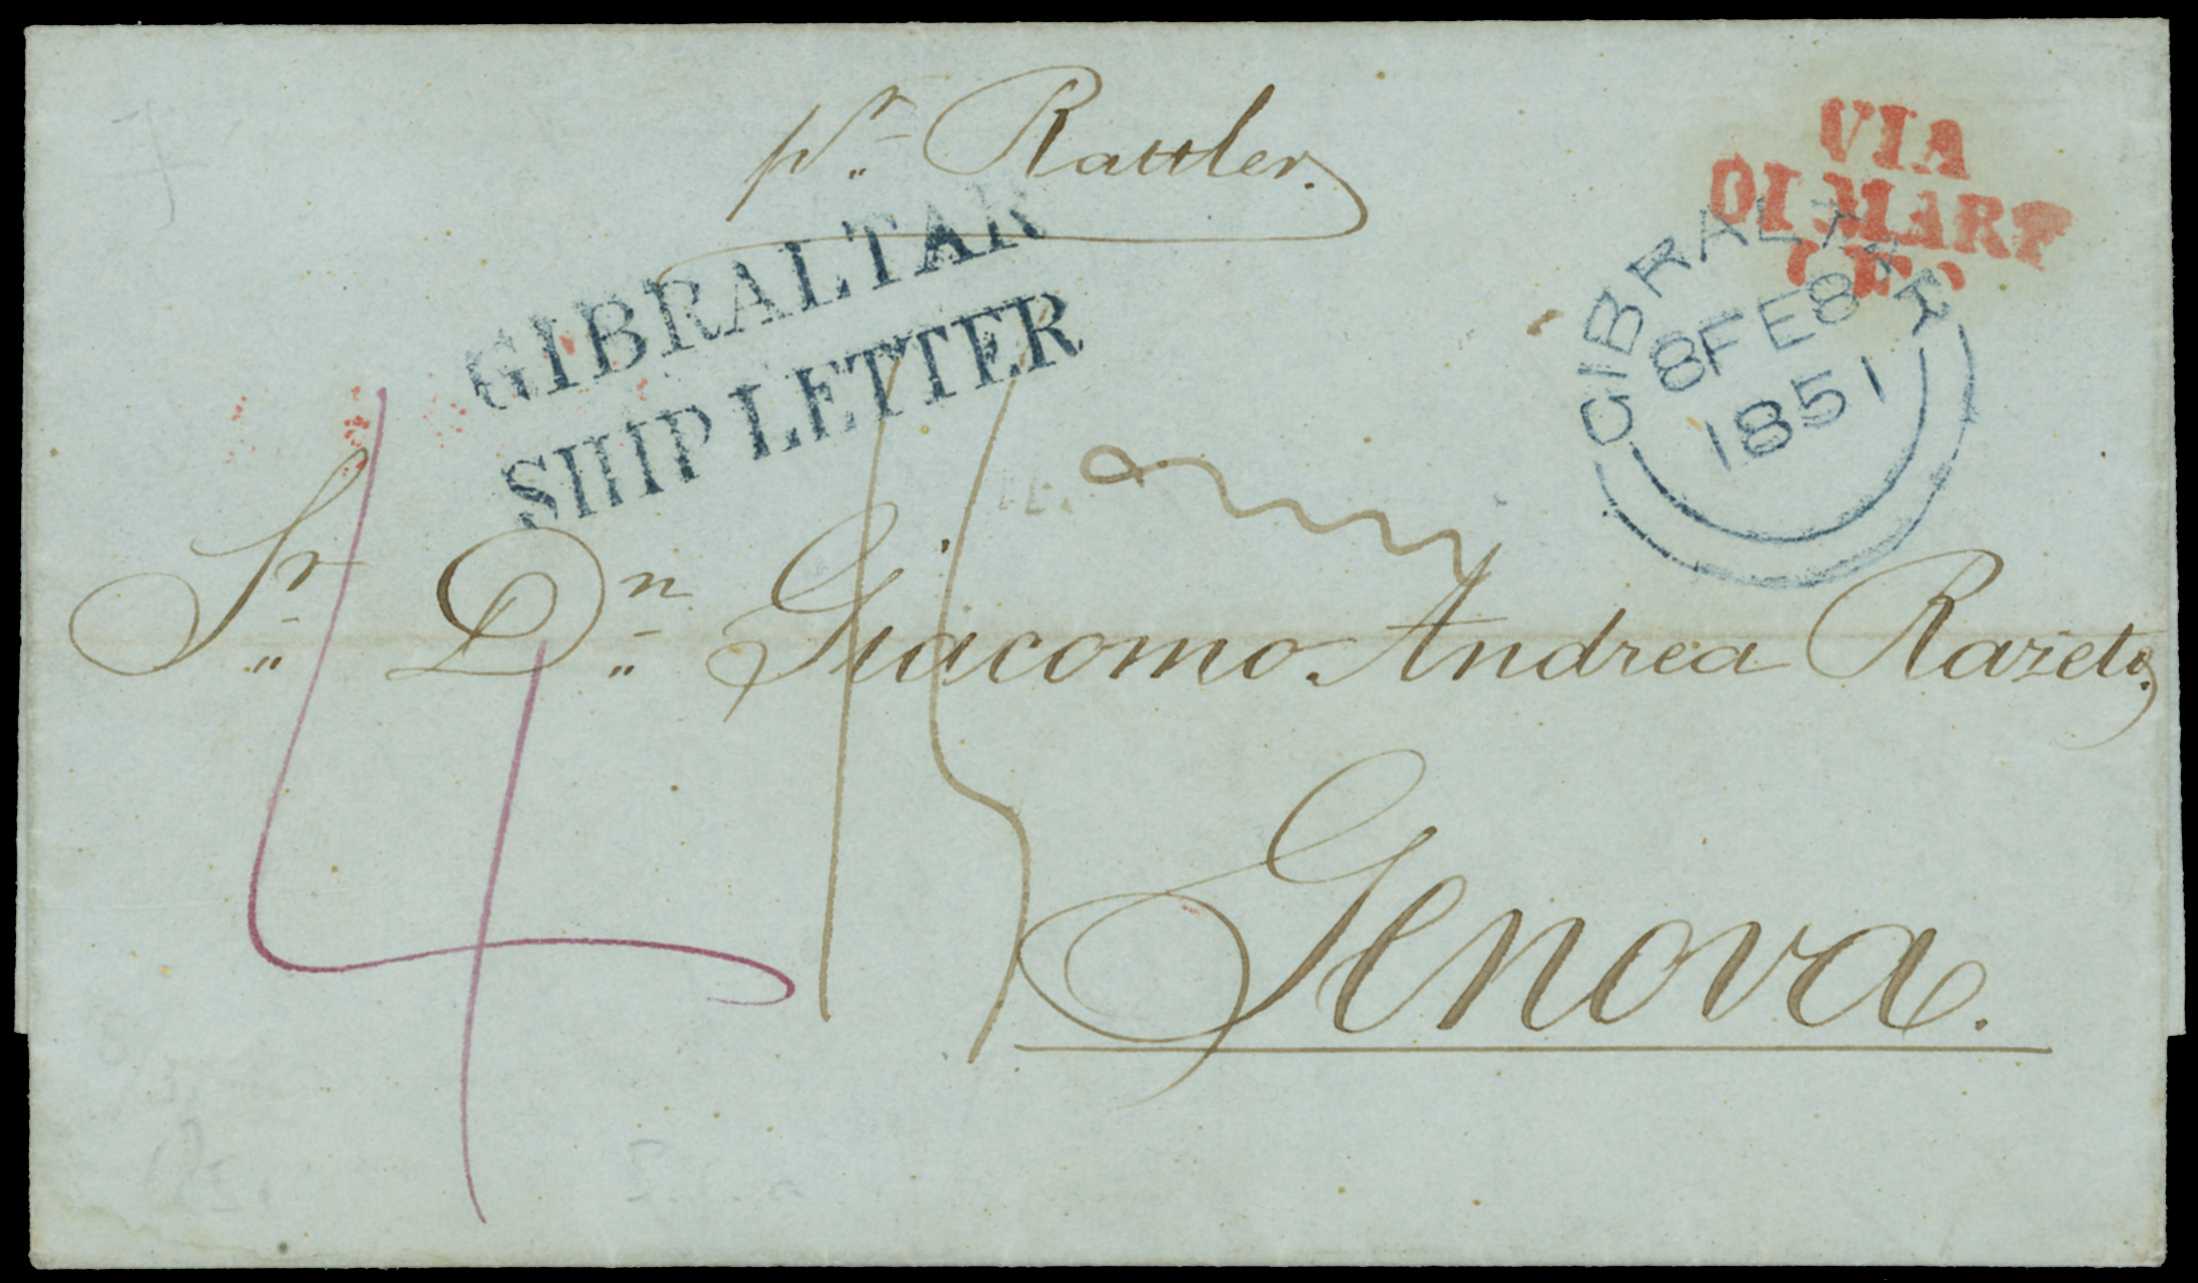 pr. Rattler.
VIA
DI MARE
GIBRALTAR
SHIP LETTER
GIBRALTAR
8 FE 8
1851
Sr. Dn. Giacomo Andrea Razeto,
Genova.
4